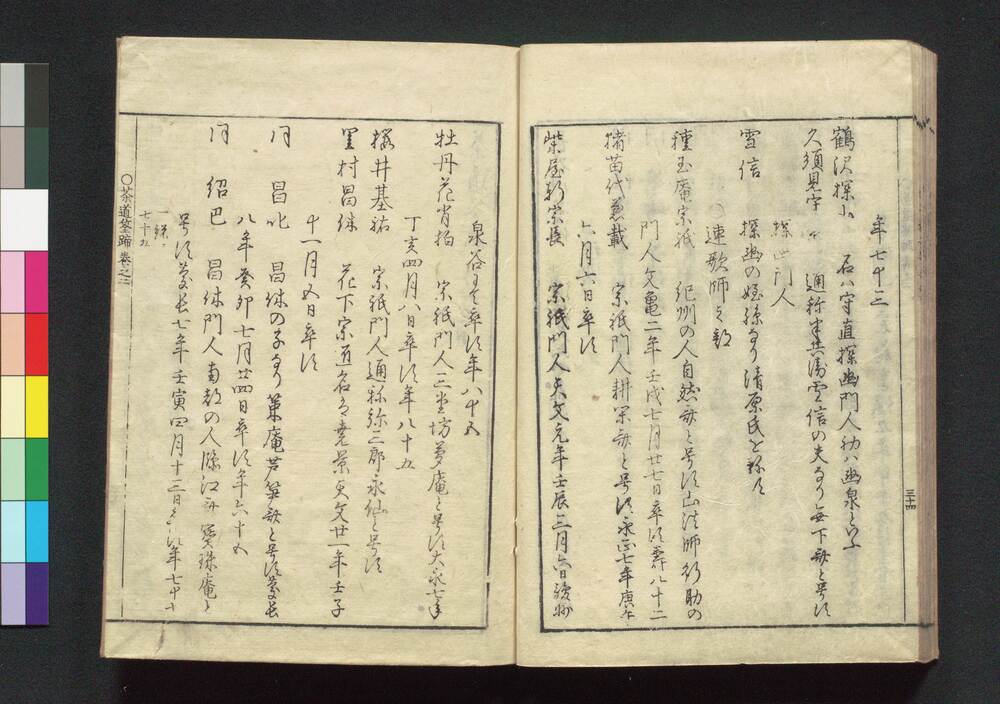 年七十三
鶴沢探山 名ハ守直探幽門人初ハ幽泉といふ
久須見守 通称半兵衛雪信の夫なり無下斎と号す
探幽門人
雪信 探幽の姪孫なり清原氏を称す
○連歌師之部
種玉庵宗祇 紀州の人自然斎と号す山法師行助の
門人文亀二年壬戌七月廿七日卒す寿八十二
猪苗代兼載 宗祇門人耕閑斎と号す永正七年庚午
六月六日卒す
柴屋軒宗長 宗祇門人天文元年壬辰三月六日駿州
泉谷にて卒す年八十五
牡丹花肖柏 宗祇門人 夢庵と号す大永七年
丁亥四月八日卒す年八十五
櫻井基祐 宗祇門人通称弥三郎永仙と号す
里村昌休 花下宗匠 天文廿一年壬子
十一月五日卒す
同 昌叱 昌休の子なり 庵芦笋斎と号す慶長
八年癸卯七月廿四日卒す年六十五
同 紹巴 昌休門人南都の人臨江斎宝珠庵と
号す慶長七年壬寅四月十二日 年七十
一ニ
七十九
○茶道筌蹄 巻之三
三十四